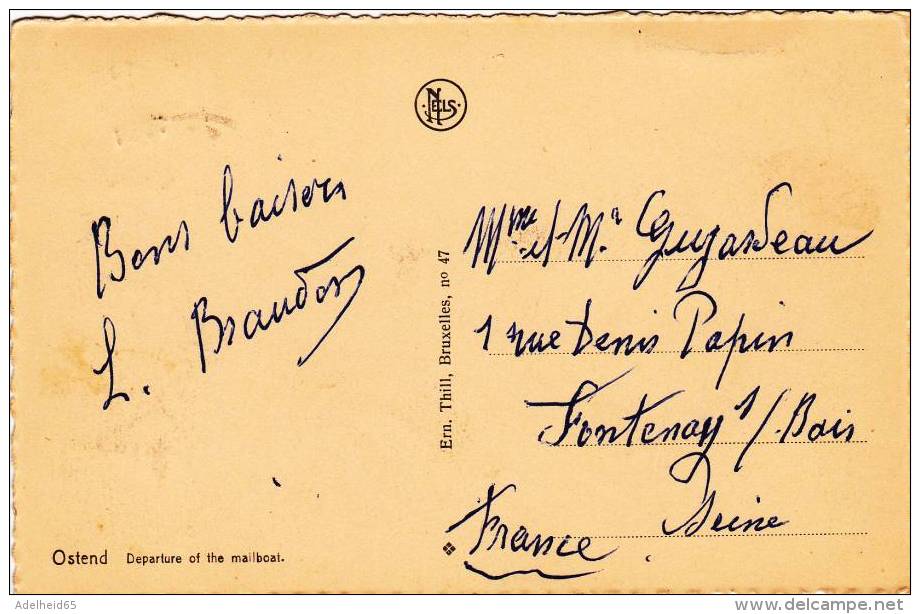 NELS
Bons baisers
L. Brandon
Ern. Thill, Bruxelles, no 47
Mme et Mr Guyardeau
1 rue Denis Papin
Fontenay s/Bois
Seine
France
Ostend Departure of the mailboat.
Adelheid65
www.delcampe.net